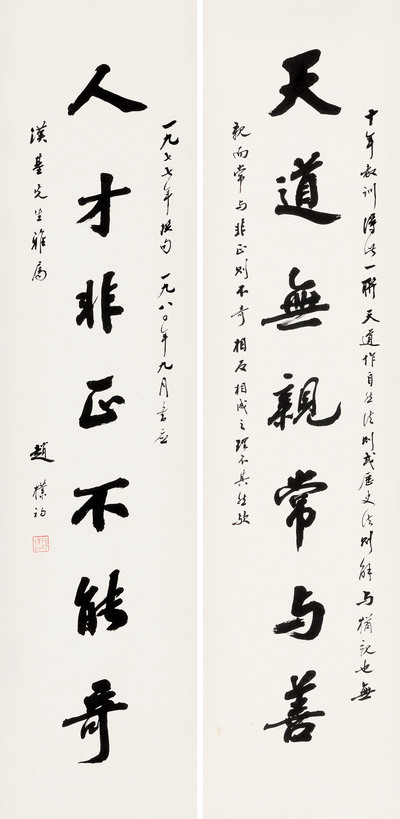 十年教训得此一联天道作自然法则或历史法则解与犹亲也無
天道無親常与善
親而常与非正则不奇相反相成之理不其然欤
一九七七年撰句一九八〇年九月書应
人才非正不能奇
漢基先生雅属
趙樸初